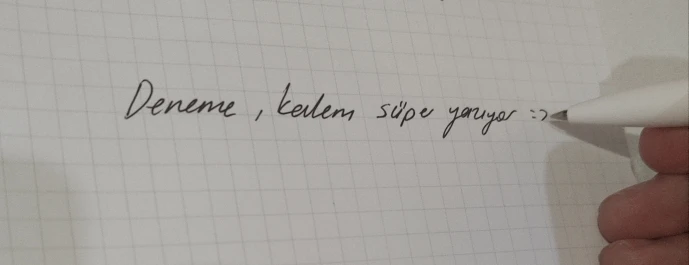 Deneme, kalem süper yazıyor :)